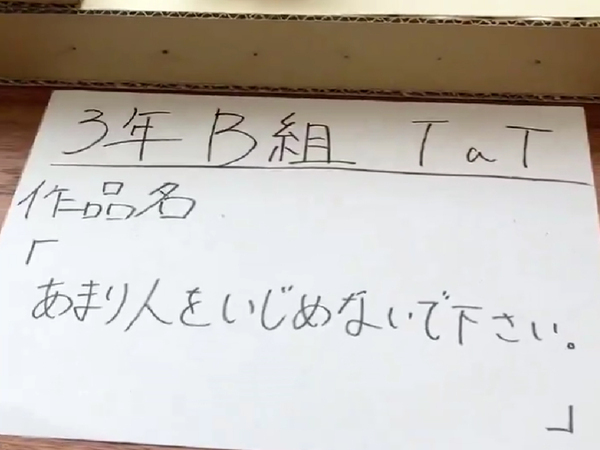 3年B組 TaT
作品名
「
あまり人をいじめないで下さい。
」